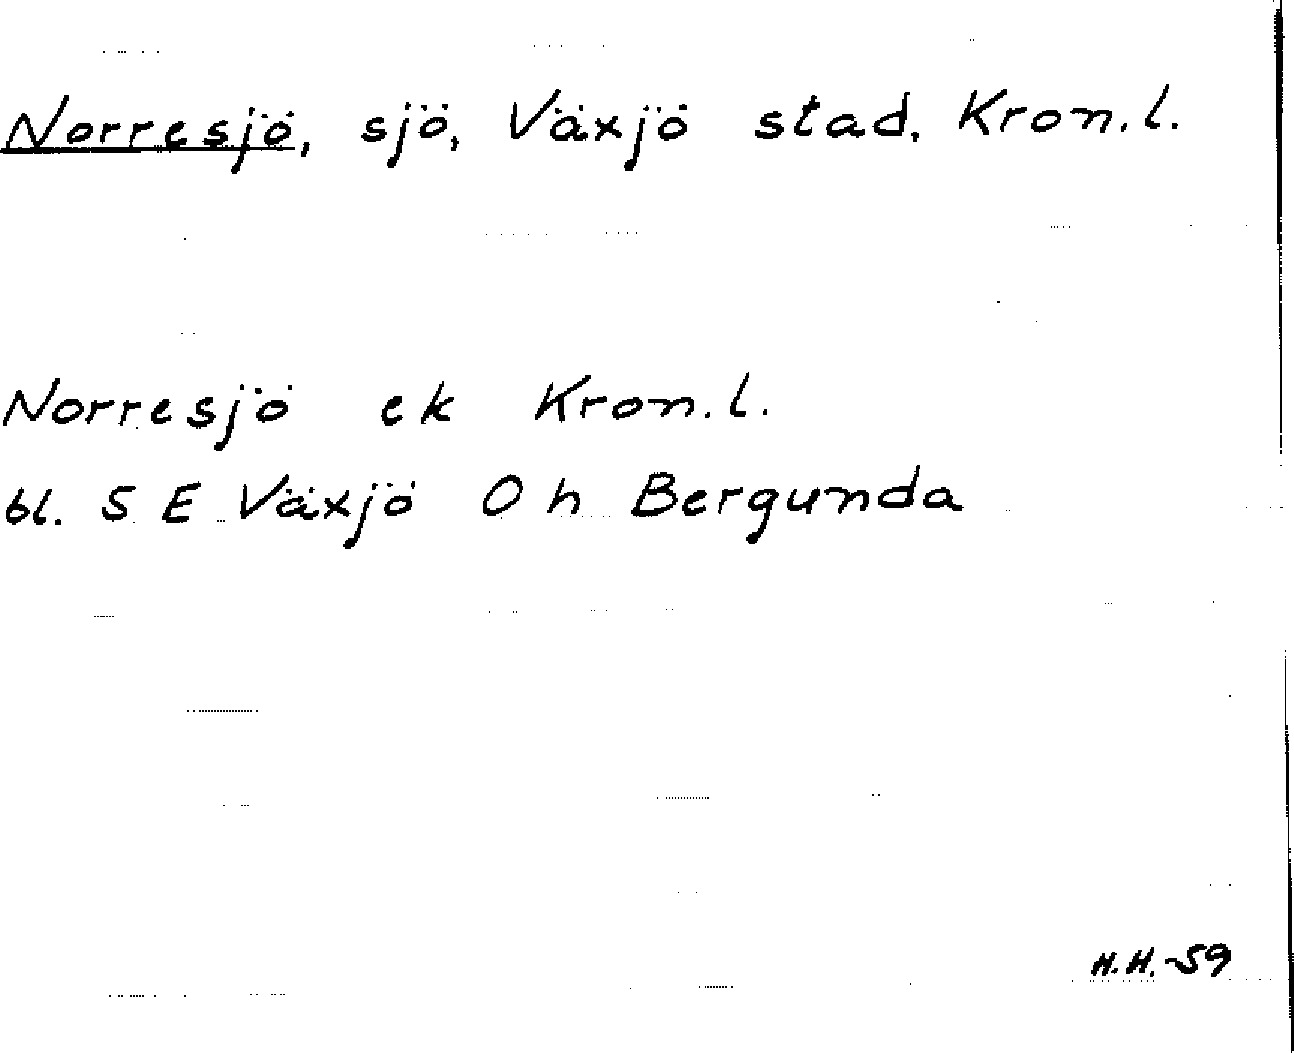 Norresjö, sjö, Växjö stad, Kron.l.
Norresjö ek Kron.l.
bl. S E Växjö O h Bergunda
H.H.-59